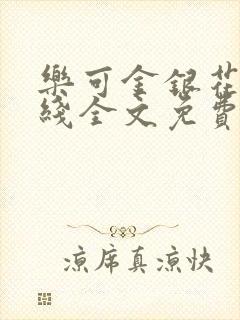 樂可金銀花
綫全文免費
涼席真涼快